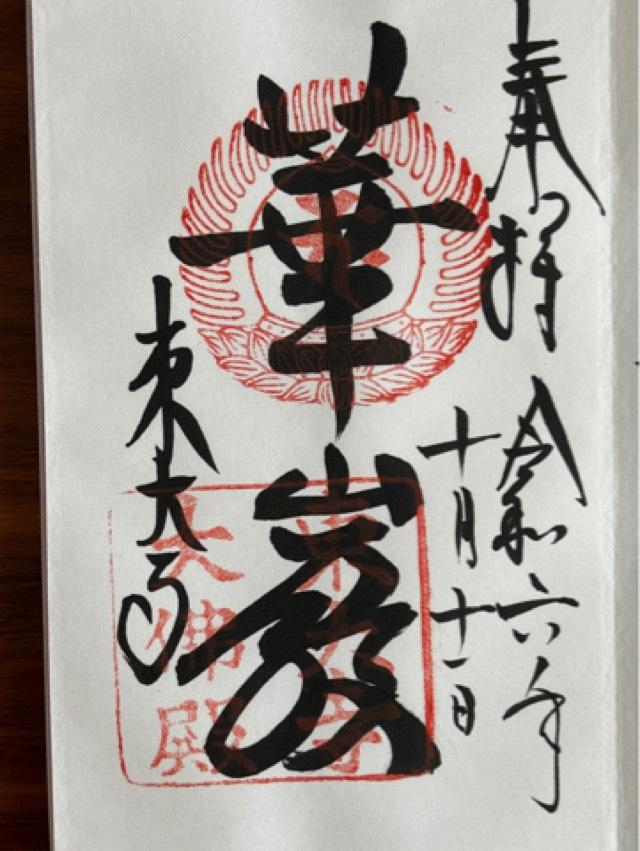 奉拝
令和六年
十月十一日
華嚴
東大寺
東大寺
大佛殿